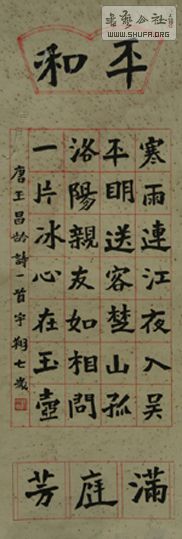 書藝公社
WWW.SHUFA.ORG
平和
寒雨連江夜入吴
平明送客楚山孤
洛陽親友如相問
一片冰心在玉壺
唐王昌齡詩一首宇翔七歲
滿庭芳